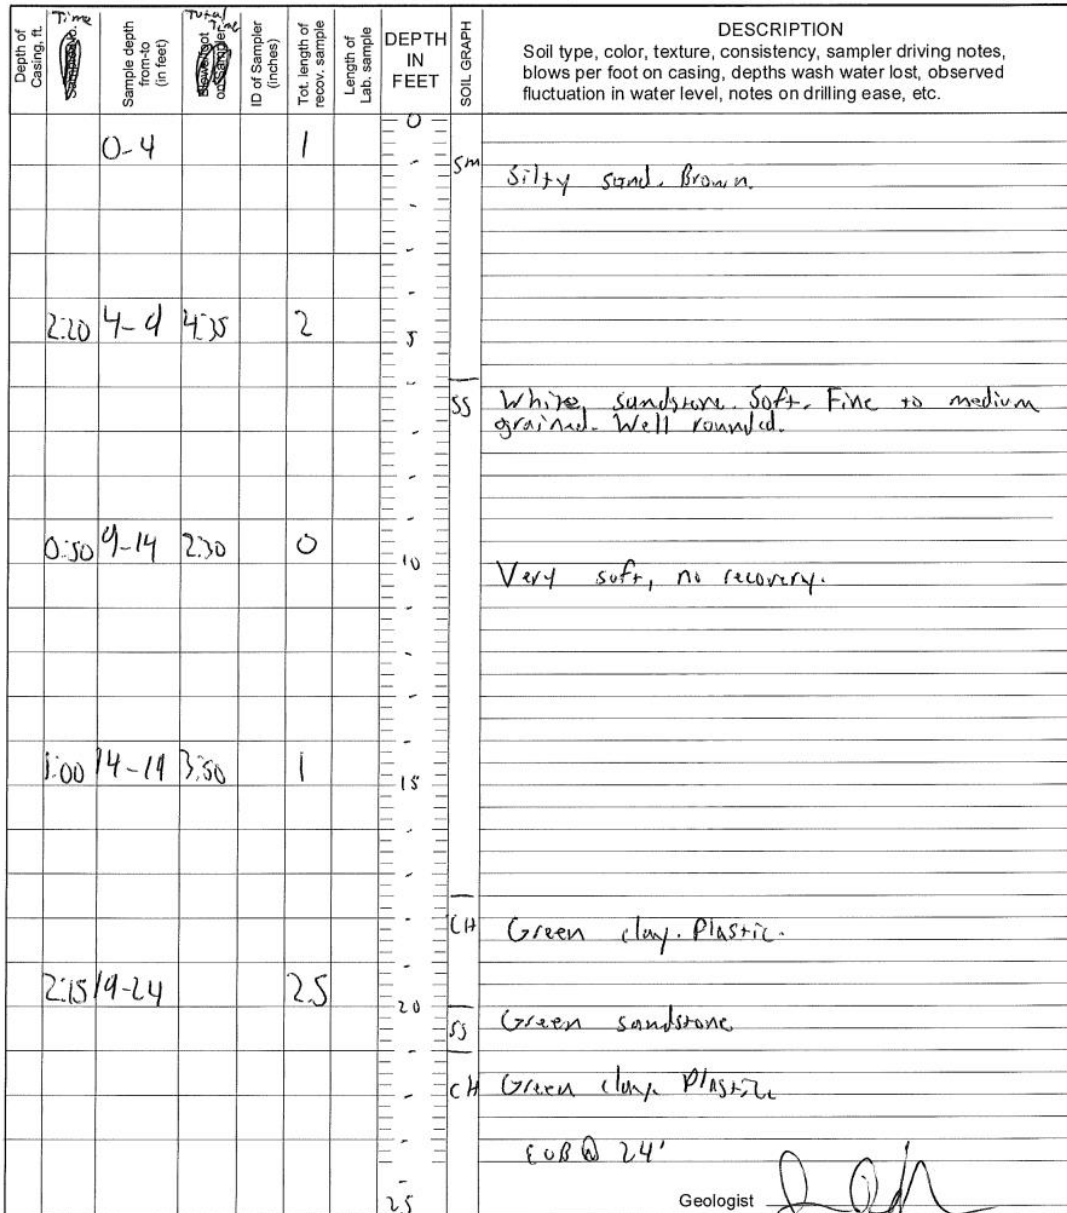 Depth of Casing, ft.
Time
Sample depth from-to (in feet)
Total Time
ID of Sampler (inches)
Tot. length of recov. sample
Length of Lab. sample
DEPTH IN FEET
SOIL GRAPH
DESCRIPTION
Soil type, color, texture, consistency, sampler driving notes,
blows per foot on casing, depths wash water lost, observed
fluctuation in water level, notes on drilling ease, etc.
0
0-4 1
SM
Silty sand. Brown.
2:20 4-9 4:35 2
5
SS White, sandstone. Soft. Fine to medium
grained. Well rounded.
0:50 9-14 2:30 0
10
Very soft, no recovery.
1:00 14-19 3:50 1
15
CH Green clay. Plastic.
2:15 19-24 2.5
20
SS Green sandstone
CH Green clay. Plastic
EOB @ 24'
25
Geologist